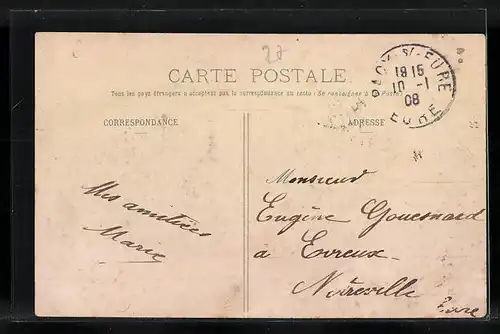 27
CARTE POSTALE
Tous les pays étrangers n'acceptent pas la correspondance au recto : Se renseigner à la Poste
CORRESPONDANCE
ADRESSE
PACY-S-EURE
1915
10 -1
08
EURE
Mes amitiées
Marie
Monsieur
Eugène Gouesnard
à Evreux
Eure